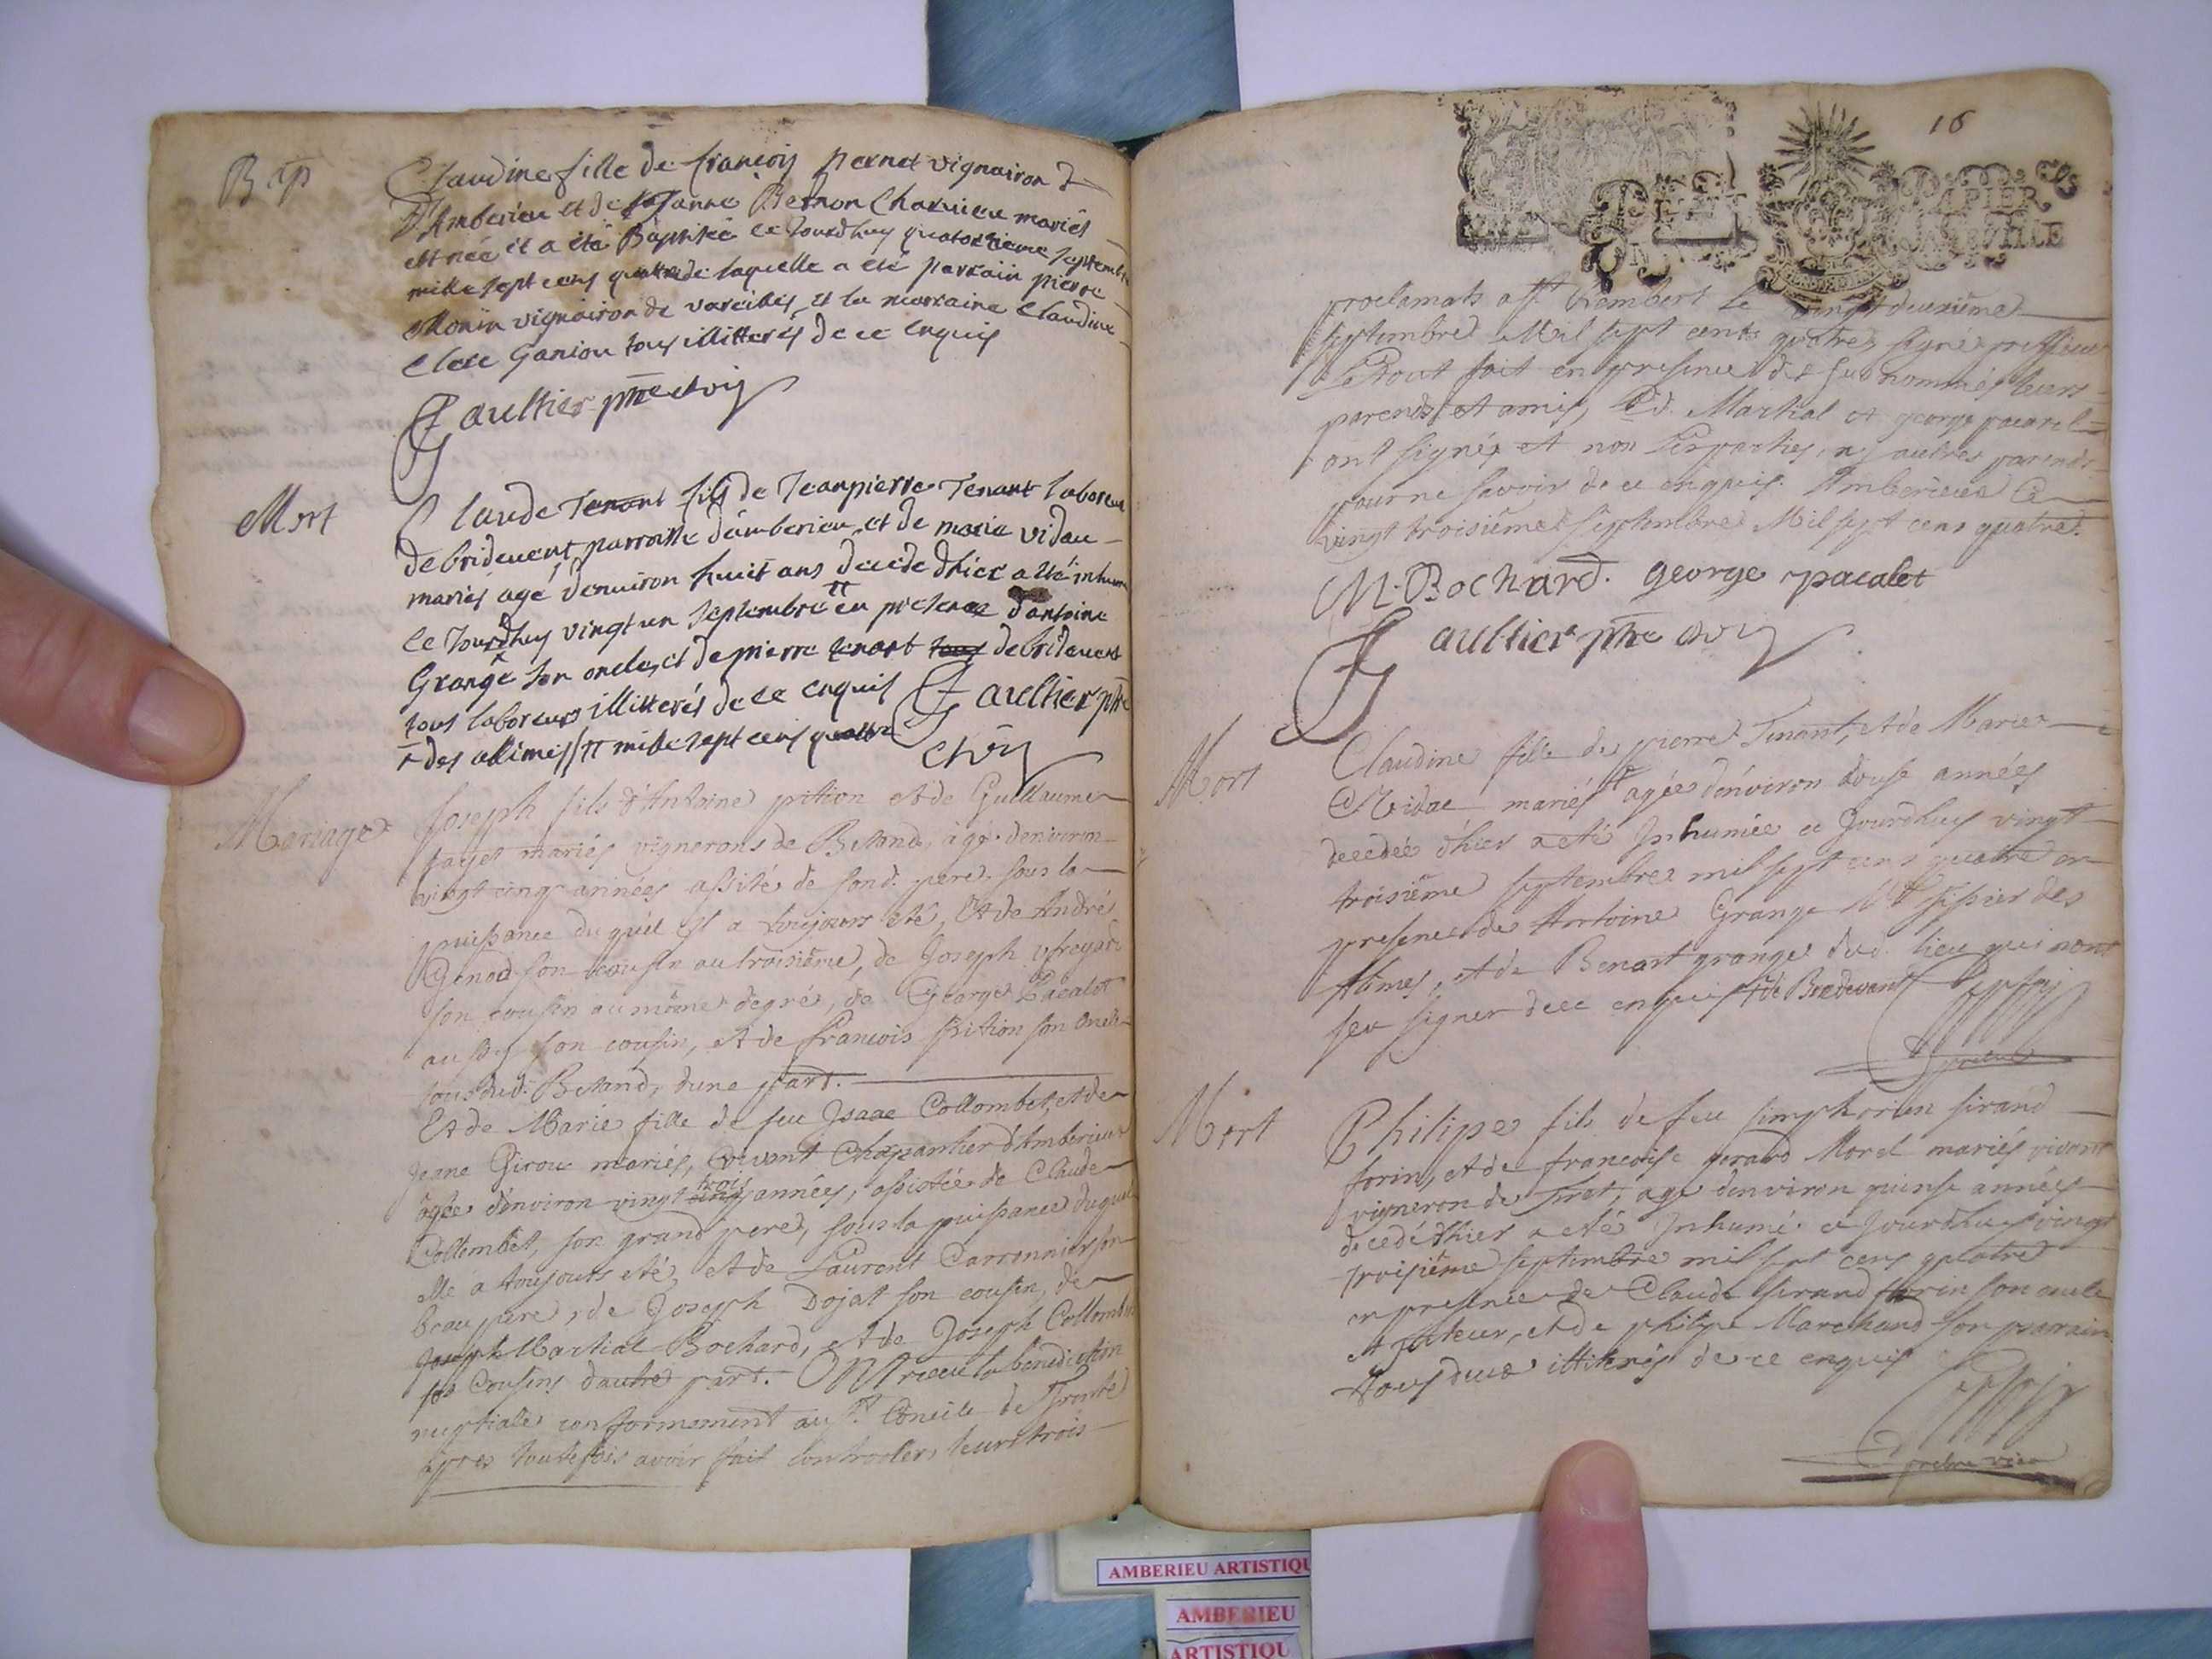 Bap
Claudine fille de françois pernet vignairon
d'Amberieu et de Janne Bernon Charuieu mariés
est née et a été Baptisée ce Jourdhuy quatorzieme septembre
mille sept cens quattre de laquelle a eté parrain pierre
Monin vignairon de vareilles, et la marraine Claudine
Clere Ganiou tous illitterés de ce enquis
Gaultier ptre
Mort
Claude Tenant fils de Jeanpierre Tenant laboreur
de bridevent parroisse d'amberieu et de marie vidau
mariés agé denuiron huit ans decede dhier a eté inhumé
ce Jourdhuy vingt un septembre en presence d'antoine
Grange son oncle, et de pierre tenant tous de bridevent
tous laboreurs illitterés de ce enquis Gaultier ptre
des allimes // mile sept cens quattre
Mariage
Joseph fils d'Antoine pition et de Guillaume
payet mariés vignerons de Betand, âgé denviron
vingt cinq années assité de sond. pere sous la
puissance duquel il a toujours eté, Et de André
Genod son cousin au troisiême, de Joseph
son cousin au même degré, de George Pacalet
aussy son cousin, et de francois pition son oncle
tous dud. Betand, dune part.
Et de Marie fille de feu Isaac Collombet, et de
Jeane Girou mariés, vivant Chapantier d'Amberieux
âgée d'environ vingt cinq trois années, assistée de Claude
Collombet, son grand pere, sous la puissance duquel
elle a toujours eté, et de Laurent Carronnier son
beau pere, de Joseph Dojat son cousin, de
Joseph Martial Bochard, et de Joseph Collombet
ses cousins dautre part. ONt receu la benediction
nuptiale conformement au St. Concile de Trente
apres toutefois avoir fait controoler leurs trois
16
PAPIER
proclamats a St. Rambert le vingt deuxiême
septembre Mil sept cents quatre, signé
Le Tout fait en presence des susnommés leurs
parends et amis, Led. Martial et george pacarel
ont signés et non les parties, ny autres parends
pour ne savoir de ce enquis. Amberieux Ce
vingt troisiême septembre Mil sept cens quatre.
M. Bochard. george pacalet
Gaultier ptre
Mort
Claudine fille de pierre Tenant, et de Marie
Vidae mariés agée d'environ douse années
decedée d'hier a eté Inhumée ce Jourdhuy vingt
troisiême septembre mil sept cens quatre en
presence de Antoine Grange des
Alimes, et de Benart grange dud. lieu qui nont
sceu signer de ce enquis de Bredevant
Mort
Philipe fils de feu simphorien sirand
forin, et de francoise gerard Morel mariés vivant
vigneron de Tiret, agé d'environ quinse années
decedé dhier a eté Inhumé ce Jourdhuy vingt
troisiême septembre mil sept cens quatre
en presence de Claude sirand forin son oncle
et tuteur, et de philipe Marchand son parrain
tous deux illiterés de ce enquis
prebre vica
AMBERIEU ARTISTIQU
AMBERIEU
ARTISTIQU